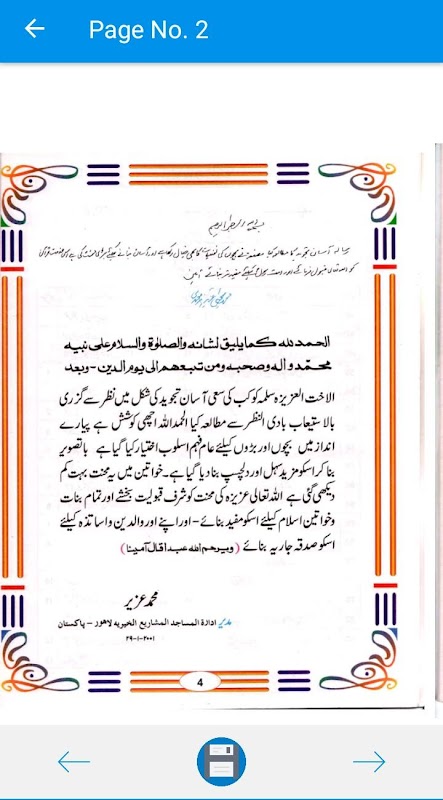 Page No. 2
الحمد لله كما يليق لشانه والصلوة والسلام على نبيه
محمد و اله و صحبه و من تبعهم الى يوم الدين - وبعد
الاخت العزیزہ سلمہ کوکب کی سعی آسان تجوید کی شکل میں نظر سے گزری
بالاستیعاب بادی النظر سے مطالعہ کیا الحمد اللہ اچھی کوشش ہے پیارے
انداز میں بچوں اور بڑوں کیلئے عام فہم اسلوب اختیار کیا گیا ہے بالتصویر
بنا کر اسکو مزید سہل اور دلچسپ بنا دیا گیا ہے۔ خواتین میں یہ محنت بہت کم
دیکھی گئی ہے اللہ تعالی عزیزہ کی محنت کو شرف قبولیت بخشے اور تمام بنات
و خواتین اسلام کیلئے اسکو مفید بنائے - اور اپنے اور والدین و اساتذہ کیلئے
اسکو صدقہ جاریہ بنائے (ويرحم الله عبد اقال آمينا)
محمد عزیر
مدیر ادارة المساجد المشاريع الخيريه لاهور - پاکستان
۲۹-۱-۲۰۰۱
4